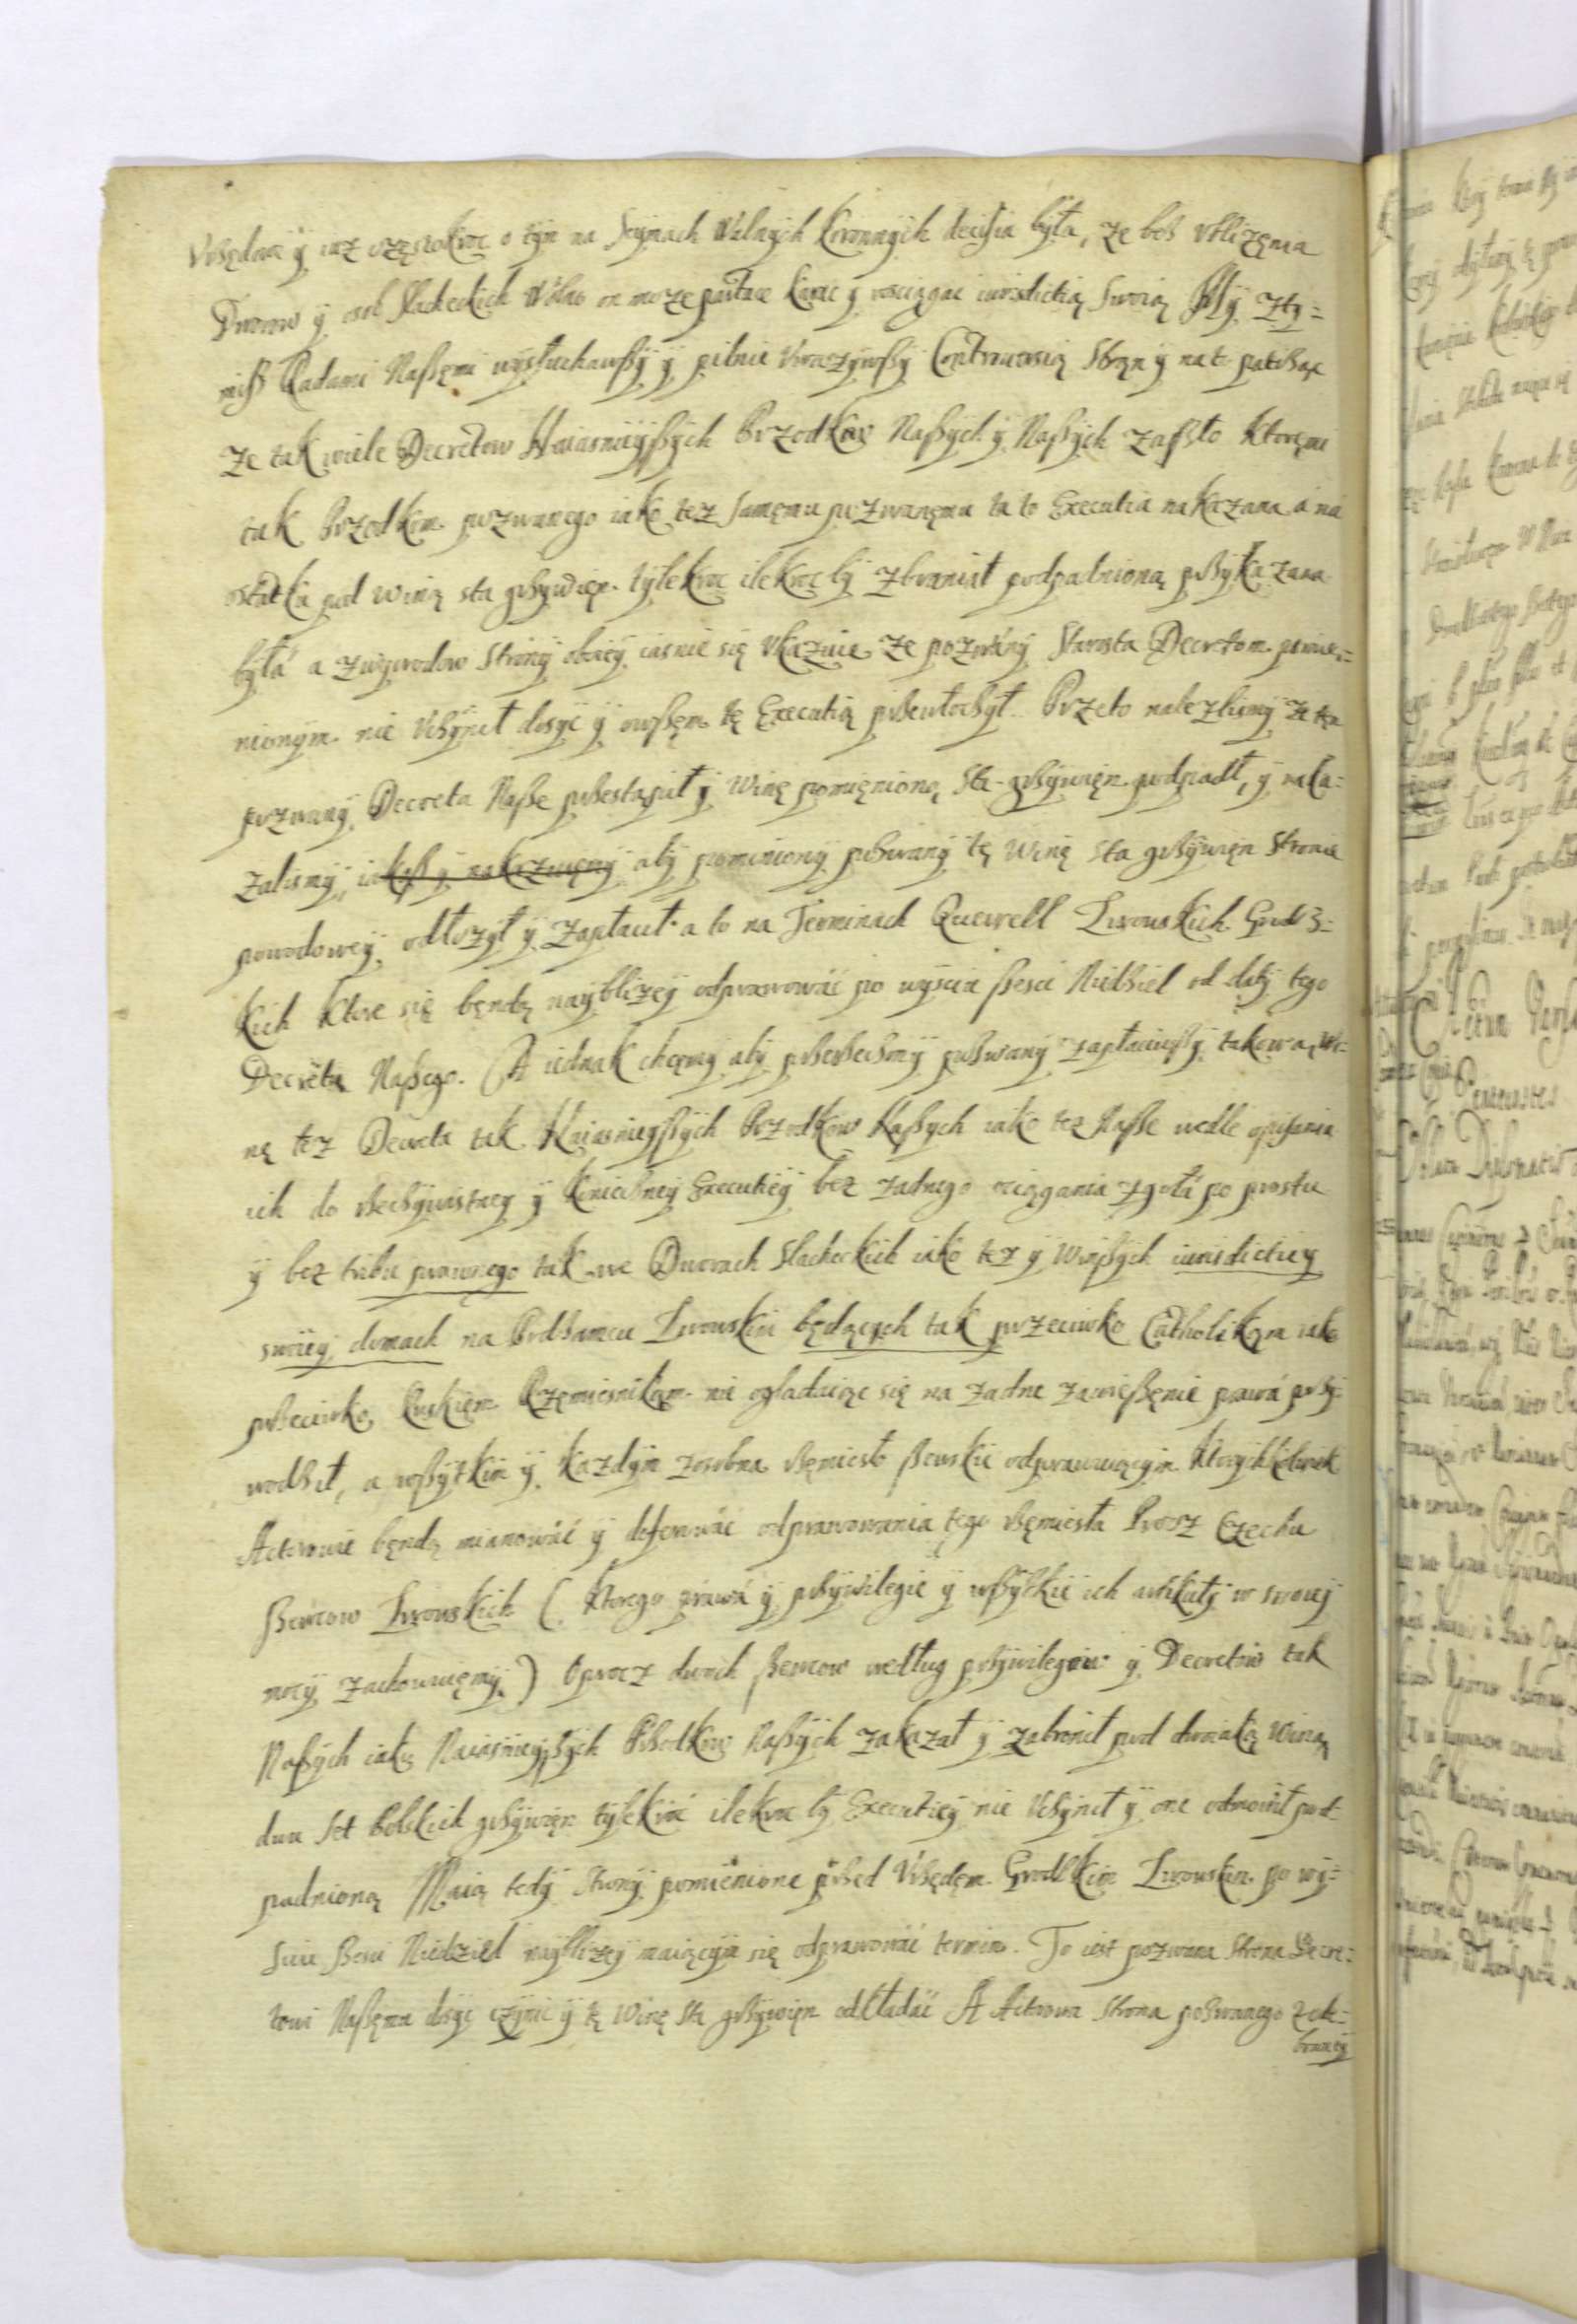 Vrsędowi y iusz częstokroc o tÿm na Seÿmach Walnÿch Koronnÿch decisia była, że bes vbliżęnia
Dworow ÿ osob Slacheckich Wolno on moze karac ÿ rosciągac iurisdictią swoią Mÿ ztę=
misz Radami Naszęmi wÿsłuchawszÿ ÿ pilnie vwazÿwszÿ Controwersią Stron ÿ na to patrząc
że tak wiele Decretow Naiasnieÿszÿch Przodkow Naszÿch ÿ Naszÿch zaszło ktoręmi
tak Przodkom pozwanego iako tez samęmu pozwanęmu ta to Executia nakazana a na
ostatku pod winą sta grzÿwięn tÿlekroc ilekroc bÿ zbraniał podpadnioną przÿkazana
była a zwÿwodow Stronÿ oboieÿ iasnie się vkazuie że pozwanÿ Starosta Decretom pomie=
nionÿm nie vczÿnił dosÿc ÿ owszęm tę Executią przewłoczÿł. Przeto nalezlismÿ że ten
pozwanÿ Decreta Nasze przestąpił ÿ winę pomięnioną sta grzÿwięn podpadł, ÿ naka=
zalismÿ, iakosz ÿ nakazuięmÿ abÿ pomienionÿ pozwanÿ tę winę sta grzÿwięn Stronie
powodoweÿ odłozÿł ÿ zapłacił a to na Terminach Querell Lwowskich Grodz=
kich ktore się będą naÿblizeÿ odprawowáć po wÿsciu szesci Niedziel od datÿ tego
Decretu Naszego. A iednak chcęmÿ abÿ przerzeczonÿ pozwanÿ zapłaciwszÿ takową wi=
nę tez Decreta tak Naiasnieÿszÿch Przodkow Naszÿch iako tez Nasze wedle opisania
ich do rzeczÿwisteÿ ÿ konieczneÿ Executieÿ bez zadnego ociągania zgoła po prostu
ÿ bez tribu prawnego tak we Dworach Slacheckich iako tez ÿ wiozszÿch iurisdictieÿ
swoieÿ domach na Podzamcu Lwowskim będącÿch tak przeciwko Catholikom iako
przeciwko Ruskiem Rzęmiesnikom nie oglądaiąc się na zadne zawieszęnie prawa przÿ
wodził, a wszÿtkim ÿ kazdÿm zosobna rzęmiesło szewskie odprawuiącÿm ktorÿchkolwiek
Actorowie będą mianować ÿ deferowác odprawowania tego rzęmiesła Procz Czechu
szewcow Lwowskich (ktorego prawa ÿ przÿwilegie ÿ wszÿtkie ich artikułÿ w swoieÿ
mocÿ zachowuięmÿ) Oprocz dwoch szewcow według przÿwilegiow ÿ Decretow tak
Naszÿch iako Naiasnieÿszÿch Przodkow Naszÿch zakazał ÿ zabronił pod winą
dwu set Polskich grzÿwięn tÿlekroć ilekroc bÿ Executieÿ nie vczÿnił ÿ one odmowił pod=
padnioną Maią tedÿ stronÿ pomienione przed Vrzędęm Grodzkim Lwowskim po wÿ=
sciu szesci Niedziel naÿblizeÿ maiącÿm się odprawowác termin. To iest pozwana Strona Decre=
towi Naszęmu dosÿc czÿnic ÿ tę winę sta grzÿwięn odkładáć A Actorowa Strona pozwanego zode=
braneÿ